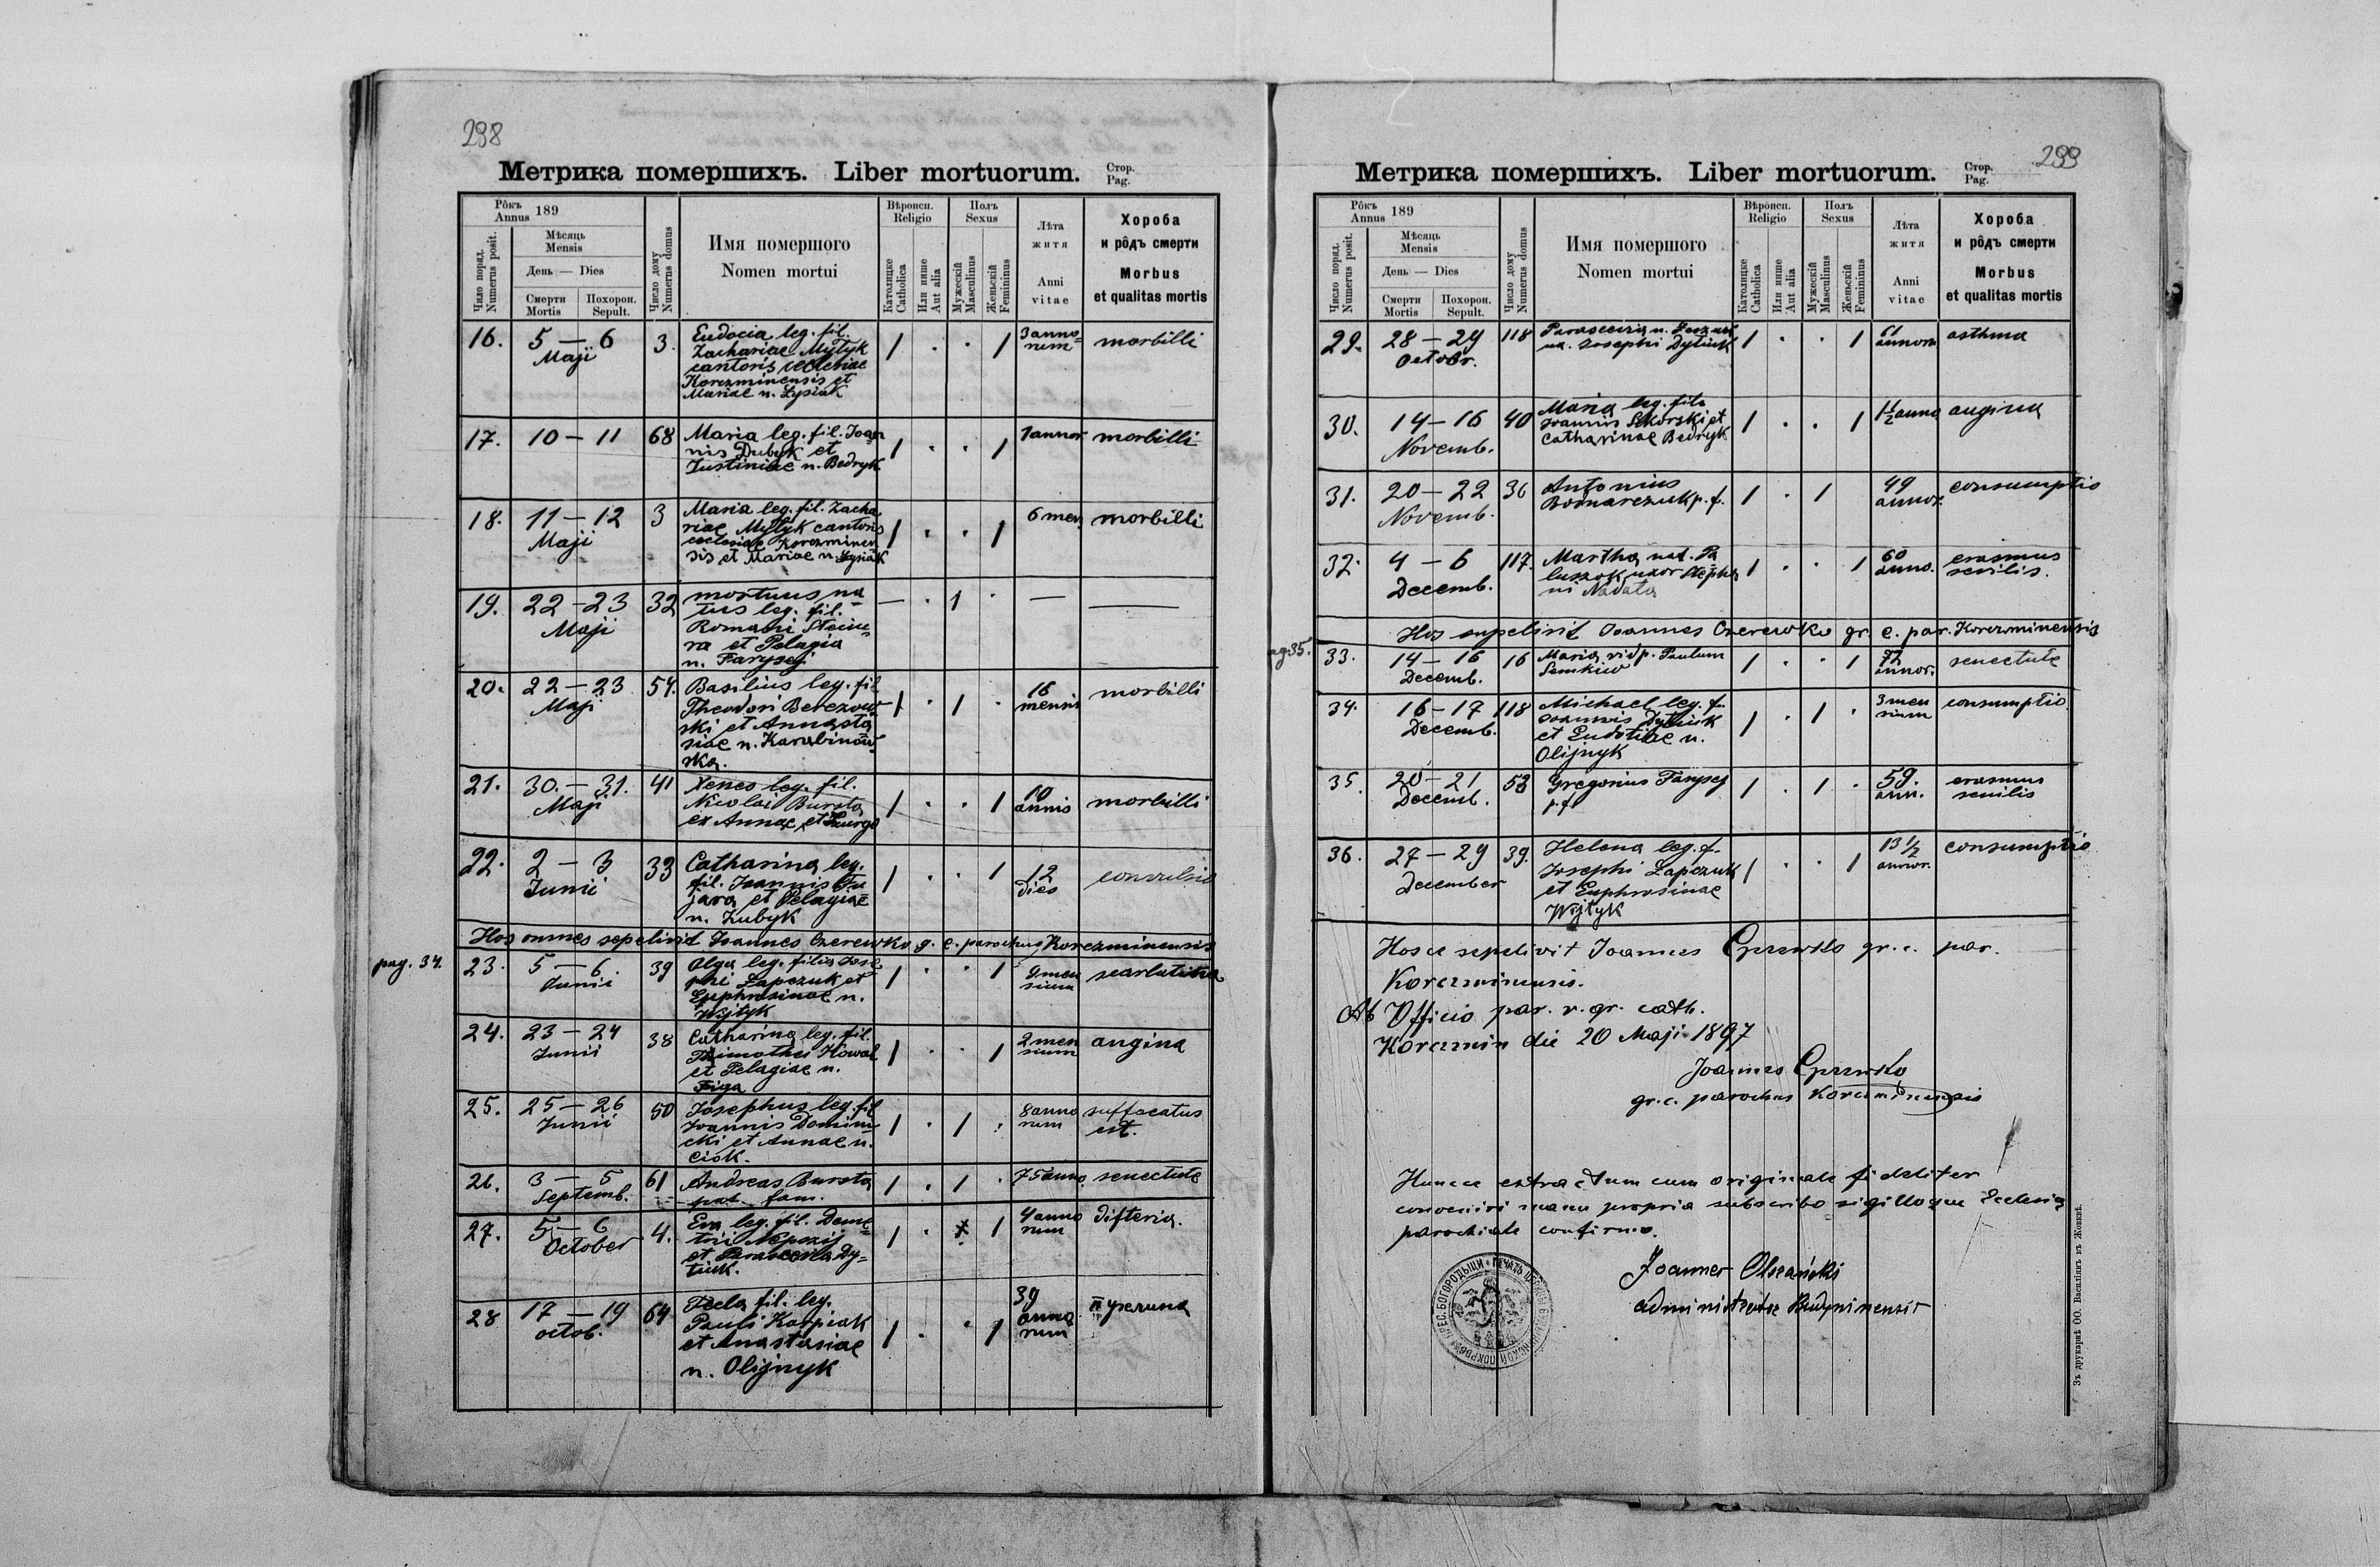 298
Метрика помершихъ. Liber mortuorum. Стор. Pag.
Рôкъ Annus 189
Число поряд. Numerus posit.
Мѣсяць Mensis
День — Dies
Смерти Mortis
Похорон. Sepult.
Число дому Numerus domus
Имя помершого
Nomen mortui
Вѣроисп. Religio
Католицке Catholica
Или инше Aut alia
Полъ Sexus
Мужескій Masculinus
Женьскій Femininus
Лѣта житя
Anni vitae
Хороба и рôдъ смерти
Morbus et qualitas mortis
16. 5 — 6 3. Eudocia leg. fil. 1 . . 1 3 anno= morbilli
Maji Zachariae Mytyk rum
cantoris ecclesiae
Korczminensis et
Mariae n. Lysiak
17. 10 — 11 68 Maria leg. fil. Joan 1 . . 1 1 annor morbilli
nis Dubyk et
Justiniae n. Bedryk
18. 11 — 12 3 Maria leg. fil. Zacha 1 . . 1 6 men. morbilli
Maji riae Mytyk cantoris
ecclesiae Korczminen
sis et Mariae n. Lysiak
19. 22 — 23 32 mortuus na — . 1 . — —
Maji tus leg. fil.
Romani
na et Pelagia
n. Farysej
20. 22 — 23 54. Basilius leg. fil 1 . 1 . 16 morbilli
Maji Theodori Berezow mensis
ski et Annasta
siae n. Karabinow
ska.
21. 30. — 31. 41 Xenes leg. fil. 1 . . 1 10 morbilli
Maji Nicolai Bursta annis
ex Annae et
22. 2 — 3 33 Catharina leg. 1 . . 1 12 convulsio
Junii fil. Joannis Fu dies
jara et Pelagiae
n. Zubyk
Hos omnes sepelivit Joannes Czerewko g. c. parochus Korczminensis
pag. 34.
23. 5 — 6. 39 Olga leg. filia Jose 1 . . 1 9 men scarlatina
Junii phi Lapczuk et sium
Euphrosinae n.
Wijtyk
24. 23 — 24 38 Catharina leg. fil. 1 . . 1 2 men angina
Junii Thimothei Kowal sium
et Pelagiae n.
Figa
25. 25 — 26 50 Josephus leg. fil 1 . 1 . 8 anno suffocatus
Junii Joannis Domin rum est.
cki et Annae n.
Ciok.
26. 3 — 5 61 Andreas Bursta 1 . 1 . 75 anno. senectute
Septemb. pat. fam.
27. 5 — 6 4. Eva leg. fil. Deme 1 . 1 4 anno difteria.
October trii Nepszij rum
et Parasceviae Dy=
tiuk.
28 17 — 19 64 Tecla fil. leg. 1 . . 1 39
octob. Pauli Karpiak anno
et Anastasiae rum
n. Olijnyk
299
Метрика помершихъ. Liber mortuorum. Стор. Pag.
Рôкъ Annus 189
Число поряд. Numerus posit.
Мѣсяць Mensis
День — Dies
Смерти Mortis
Похорон. Sepult.
Число дому Numerus domus
Имя помершого
Nomen mortui
Вѣроисп. Religio
Католицке Catholica
Или инше Aut alia
Полъ Sexus
Мужескій Masculinus
Женьскій Femininus
Лѣта житя
Anni vitae
Хороба и рôдъ смерти
Morbus et qualitas mortis
29. 28 — 29 118 Parascevia n. 1 . . 1 61 asthma
Octobr. ux. Josephi Dytiuk annor.
30. 14 — 16 40 Maria leg. fil. 1 . . 1 1 1/2 anno angina
Novemb. Joannis Sikorski et
Catharinae Bedryk
31. 20 — 22 36 Antonius 1 . 1 49 consumptio
Novemb. Bodnarczuk p. f. annor.
32. 4 — 6 117. Martha nat. Pa 1 . . 1 60
Decemb. luszok uxor Stepha anno. senilis.
ni
Hos sepelivit Joannes Czerewko gr. c. par. Korczminensis
pag 35.
33. 14 — 16 16 Maria vid p. Paulum 1 . . 1 72 senectute
Decemb. Semkiw annor.
34. 16 — 17 118 Michael leg. f. 1 . 1 . 3 men consumptio
Decemb. Joannis Dytiuk sium
et Eudotiae n.
Olijnyk
35. 20 — 21 53 Gregorius Farysej 1 . 1 . 59.
Decemb. p. f. ann. senilis
36. 27 — 29 39. Helena leg. f. 1 . . 1 13 1/2 consumptio
December Josephi Lapczuk annor.
et Euphrosinae
Wijtyk
Hosce sepelivit Joannes Czerewko gr. c. par.
Korczminensis.
Ab Officio par. r. gr. cath.
Korczmin die 20 Maji 1897
Joannes Czerewko
gr. c. parochus Korczminensis
Hunce extractum cum originale fideliter
convenire manu propria subscribo sigilloque Ecclesiae
parochiale confirmo.
Joannes Olszański
administrator Budyninensis
Зъ друкарнѣ ОО. Василіянъ въ Жовквѣ.